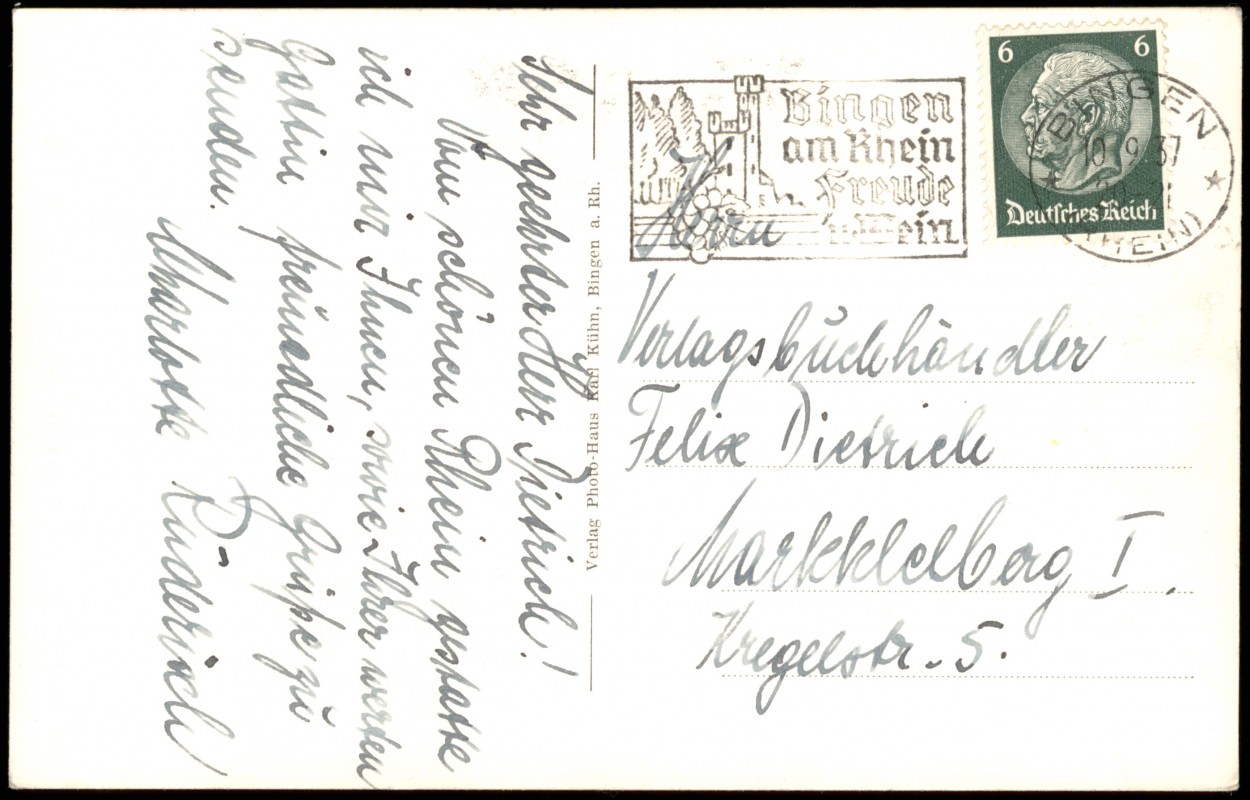 Sehr geehrter Herr Dietrich!
Vom schönen Rhein gestatte
ich mir Ihnen, sowie Ihrer werten
Gattin freundliche Grüße zu
senden.
Rüderich
Verlag Photo-Haus Karl Kühn, Bingen a. Rh.
Bingen
am Rhein
Freude
Wein
6 6
Deutsches Reich
BINGEN
10.9.37
(RHEIN)
Herrn
Verlagsbuchhändler
Felix Dietrich
Markkleeberg I.
Kregelstr. 5.